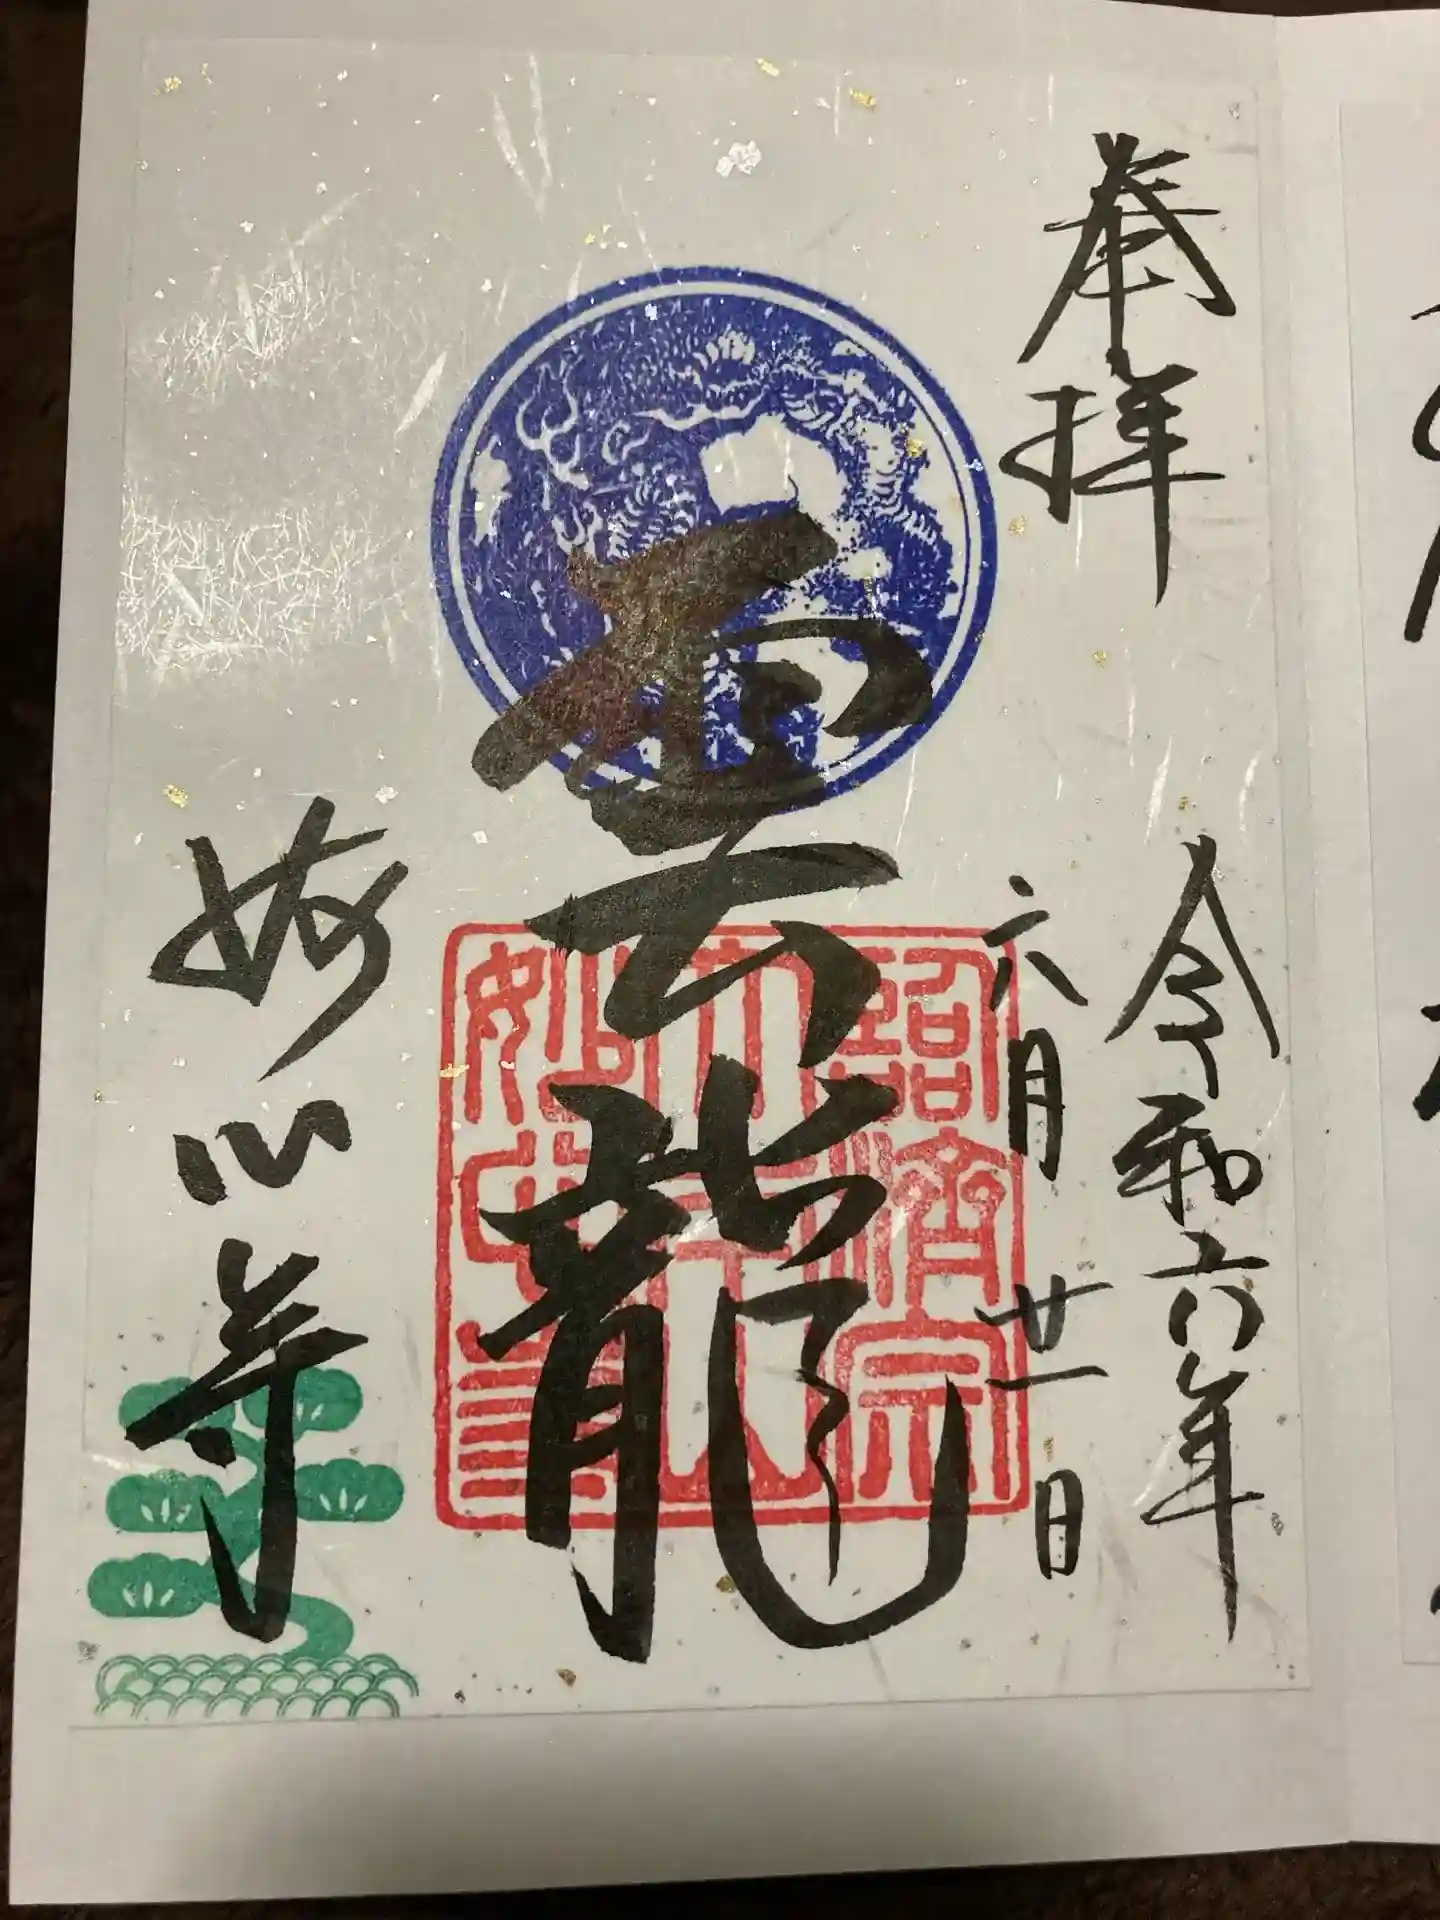 奉拝
令和六年
六月廿一日
雲龍
臨濟宗
大本山
妙心寺
妙心寺